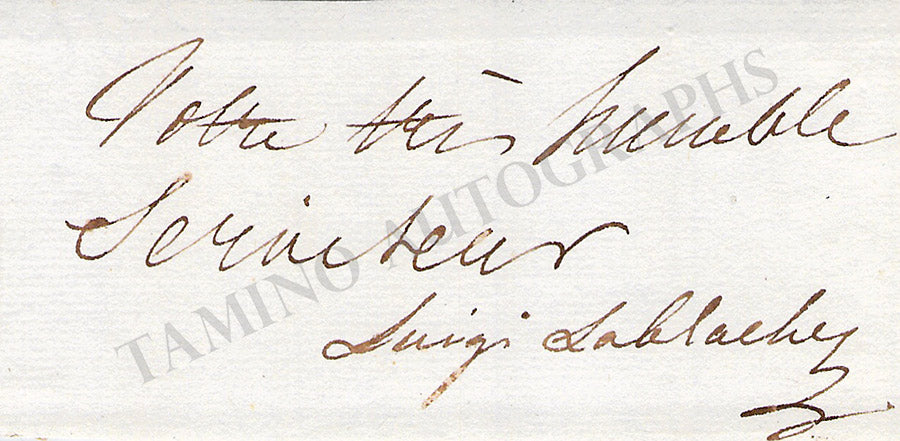 Votre très humble
Serviteur
Luigi Lablache
TAMINO AUTOGRAPHS